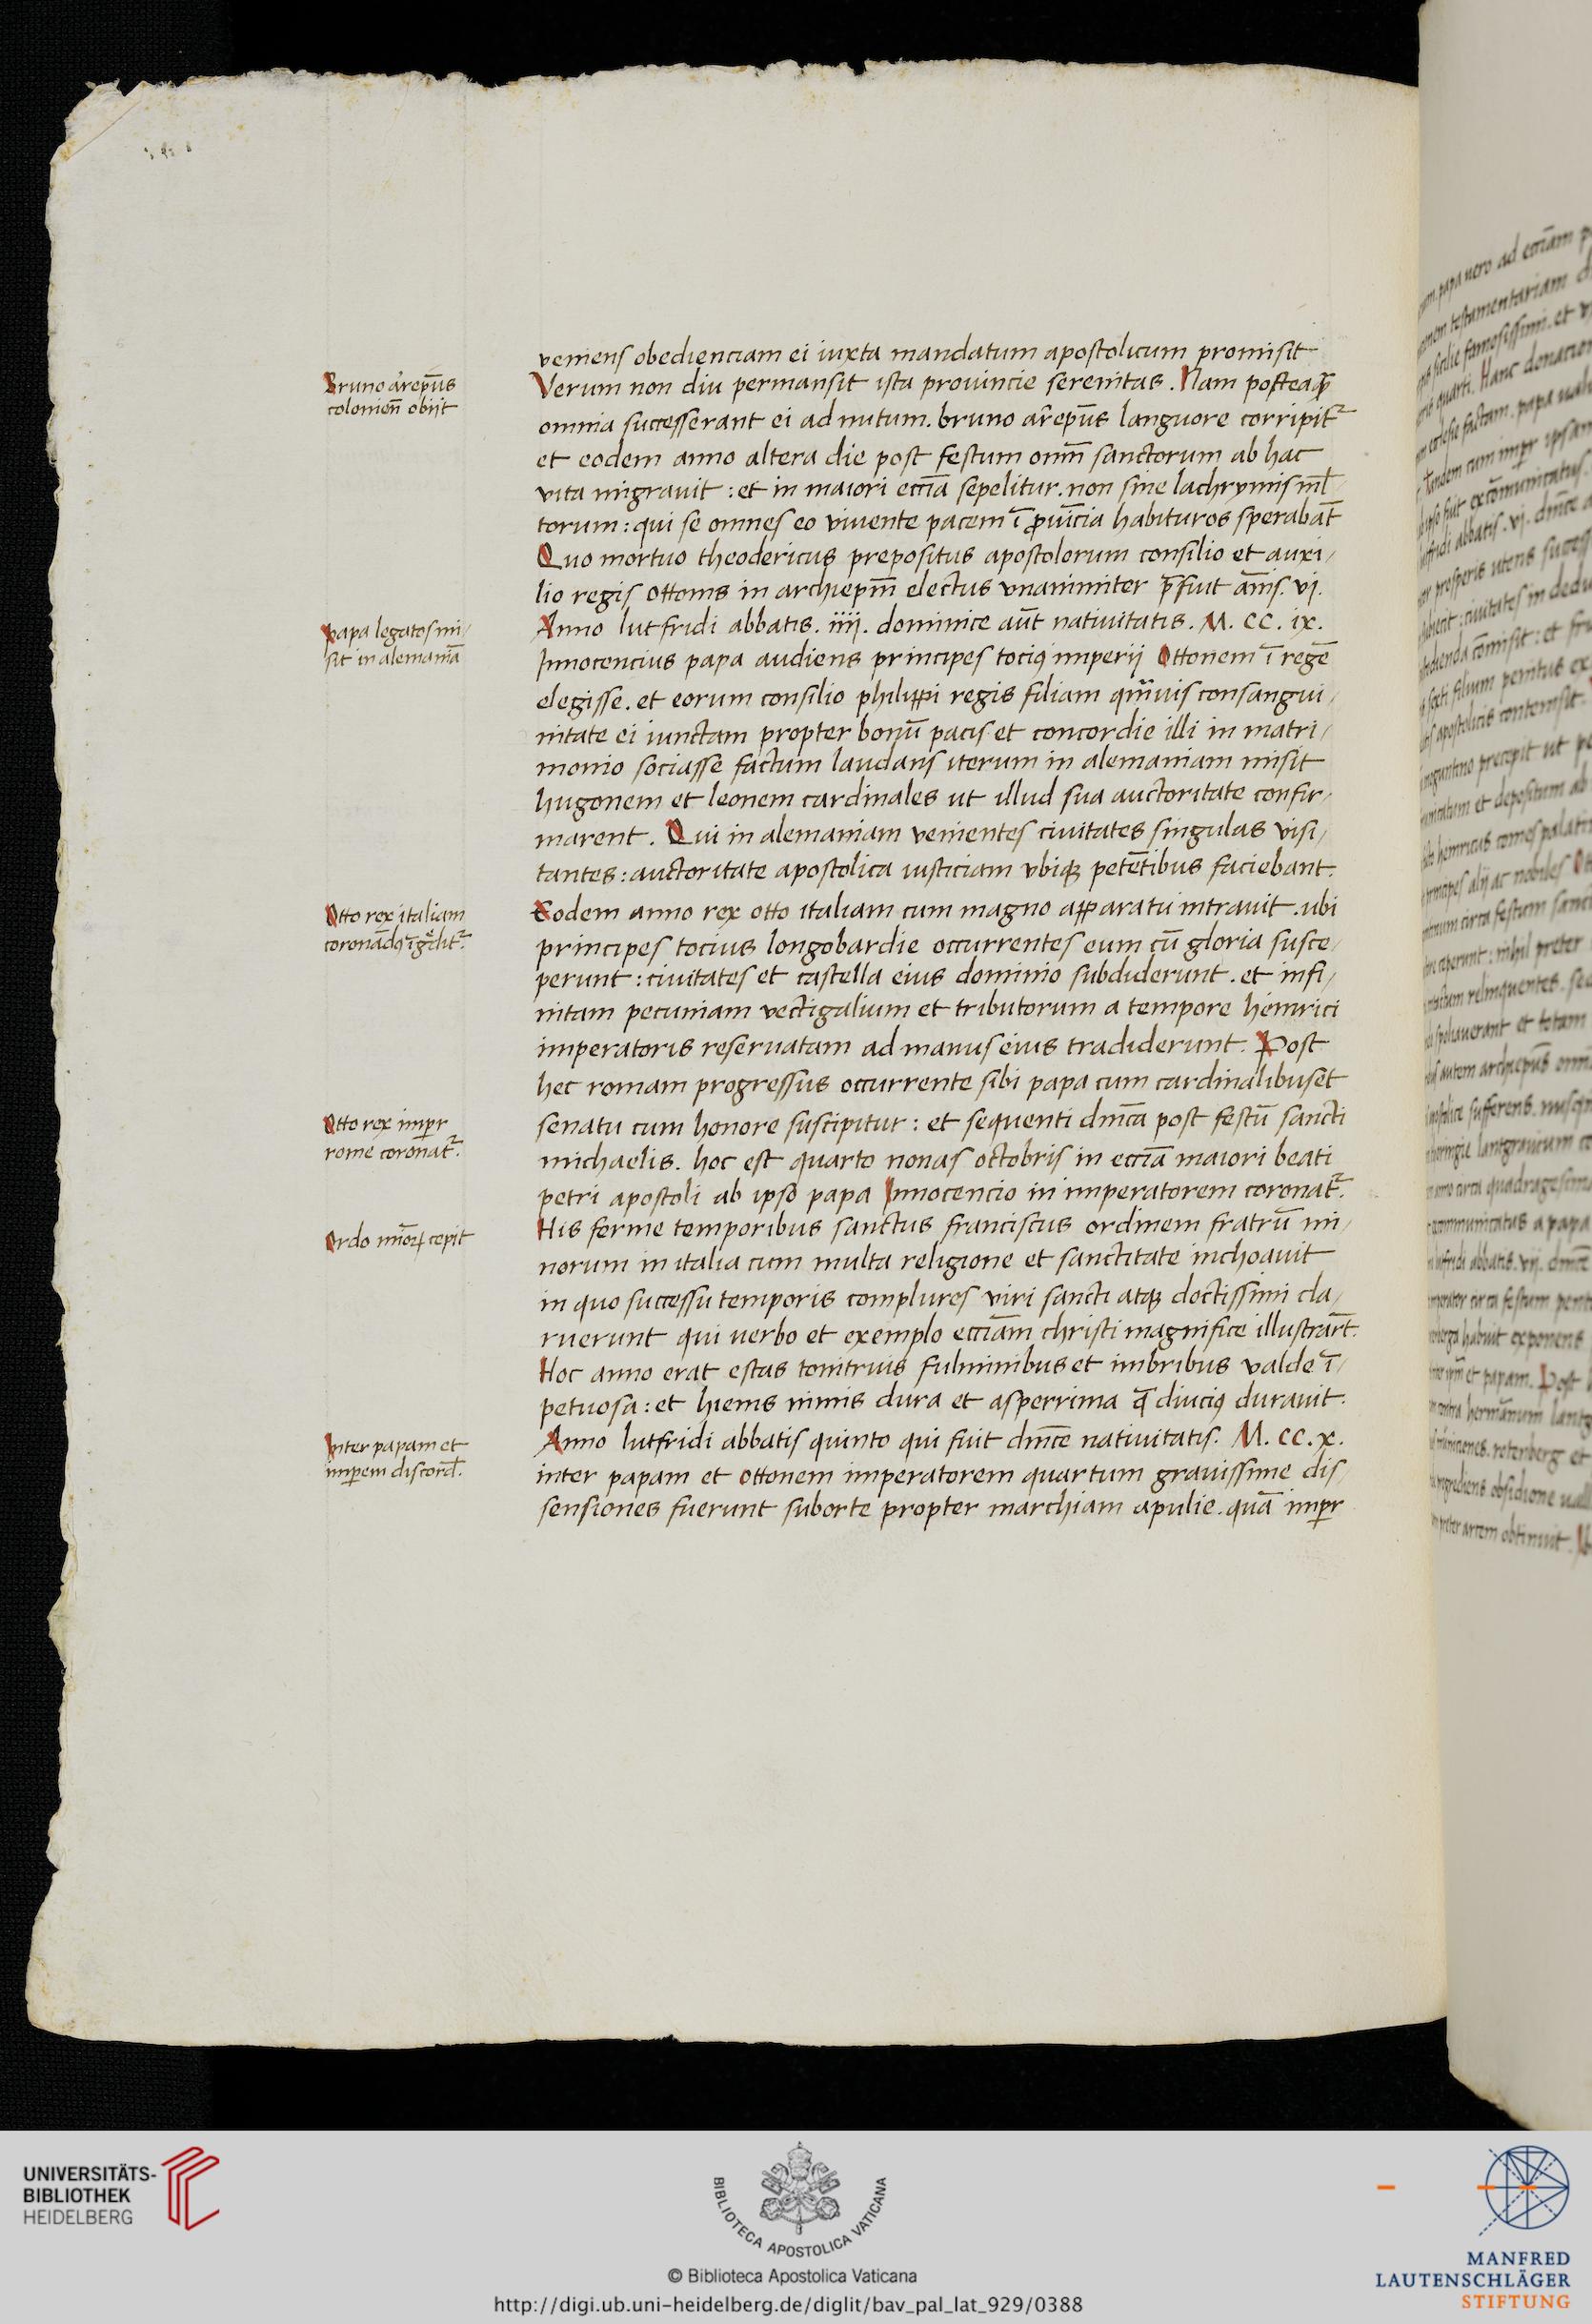 veniens obedienciam ei iuxta mandatum apostolicum promisit
Bruno arēpūs
colonieñ obijt
Verum non diu permansit ista prouincie serenitas. Nam posteaꝙ̄
omnia successerant ei ad nutum. bruno arēpūs languore corripit᷑
et eodem anno altera die post festum om̄m sanctorum ab hac
vita migrauit : et in maiori eccīa sepelitur. non sine lachrymis ml̄
torum : qui se omnes eo viuente pacem ī ꝓuīcia habituros sperabāt
Quo mortuo theodericus prepositus apostolorum consilio et auxi/
lio regis ottonis in archiepm̄ electus vnanimiter p̄fuit an̄is. vi.
papa legatos mi/
sit in alemaniā
Anno lutfridi abbatis. iiij. dominice aūt natiuitatis. M. CC. ix.
Innocencius papa audiens principes tociꝰ imperij Ottonem ī regē
elegisse. et eorum consilio philippi regis filiam qm̄uis consangui/
nitate ei iunctam propter bonū pacis et concordie illi in matri/
monio sociasse factum laudans iterum in alemaniam misit
hugonem et leonem cardinales ut illud sua auctoritate confir/
marent. Qui in alemaniam venientes ciuitates singulas visi/
tantes : auctoritate apostolica iusticiam vbiqꝫ petētibus faciebant.
Otto rex italiam
Eodem anno rex otto italiam cum magno apparatu intrauit. ubi
principes tocius longobardie occurrentes eum cū gloria susce/
perunt : ciuitates et castella eius dominio subdiderunt. et infi/
nitam pecuniam vectigalium et tributorum a tempore heinrici
imperatoris reseruatam ad manus eius tradiderunt. Post
hec romam progressus occurrente sibi papa cum cardinalibus et
Otto rex imꝑr
rome coronat᷑.
senatu cum honore suscipitur : et sequenti dm̄ca post festū sancti
michaelis. hoc est quarto nonas octobris in eccīa maiori beati
petri apostoli ab ipso papa Innocencio in imperatorem coronat᷑.
Ordo mīoꝝ cepit
His ferme temporibus sanctus franciscus ordinem fratrū mi/
norum in italia cum multa religione et sanctitate inchoauit
in quo successu temporis complures viri sancti atqꝫ doctissimi cla/
ruerunt qui verbo et exemplo eccīam christi magnifice illustrar̄t.
Hoc anno erat estas tonitruis fulminibus et imbribus valde ī/
petuosa : et hiems nimis dura et asperrima q̄ diuciꝰ durauit.
Inter papam et
imꝑem discord̄.
Anno lutfridi abbatis quinto qui fuit dm̄ce natiuitatis. M. CC. x.
inter papam et ottonem imperatorem quartum grauissime dis/
sensiones fuerunt suborte propter marchiam apulie. quā imꝑr
UNIVERSITÄTS-
BIBLIOTHEK
HEIDELBERG
BIBLIOTECA APOSTOLICA VATICANA
© Biblioteca Apostolica Vaticana
http://digi.ub.uni-heidelberg.de/diglit/bav_pal_lat_929/0388
MANFRED
LAUTENSCHLÄGER
STIFTUNG